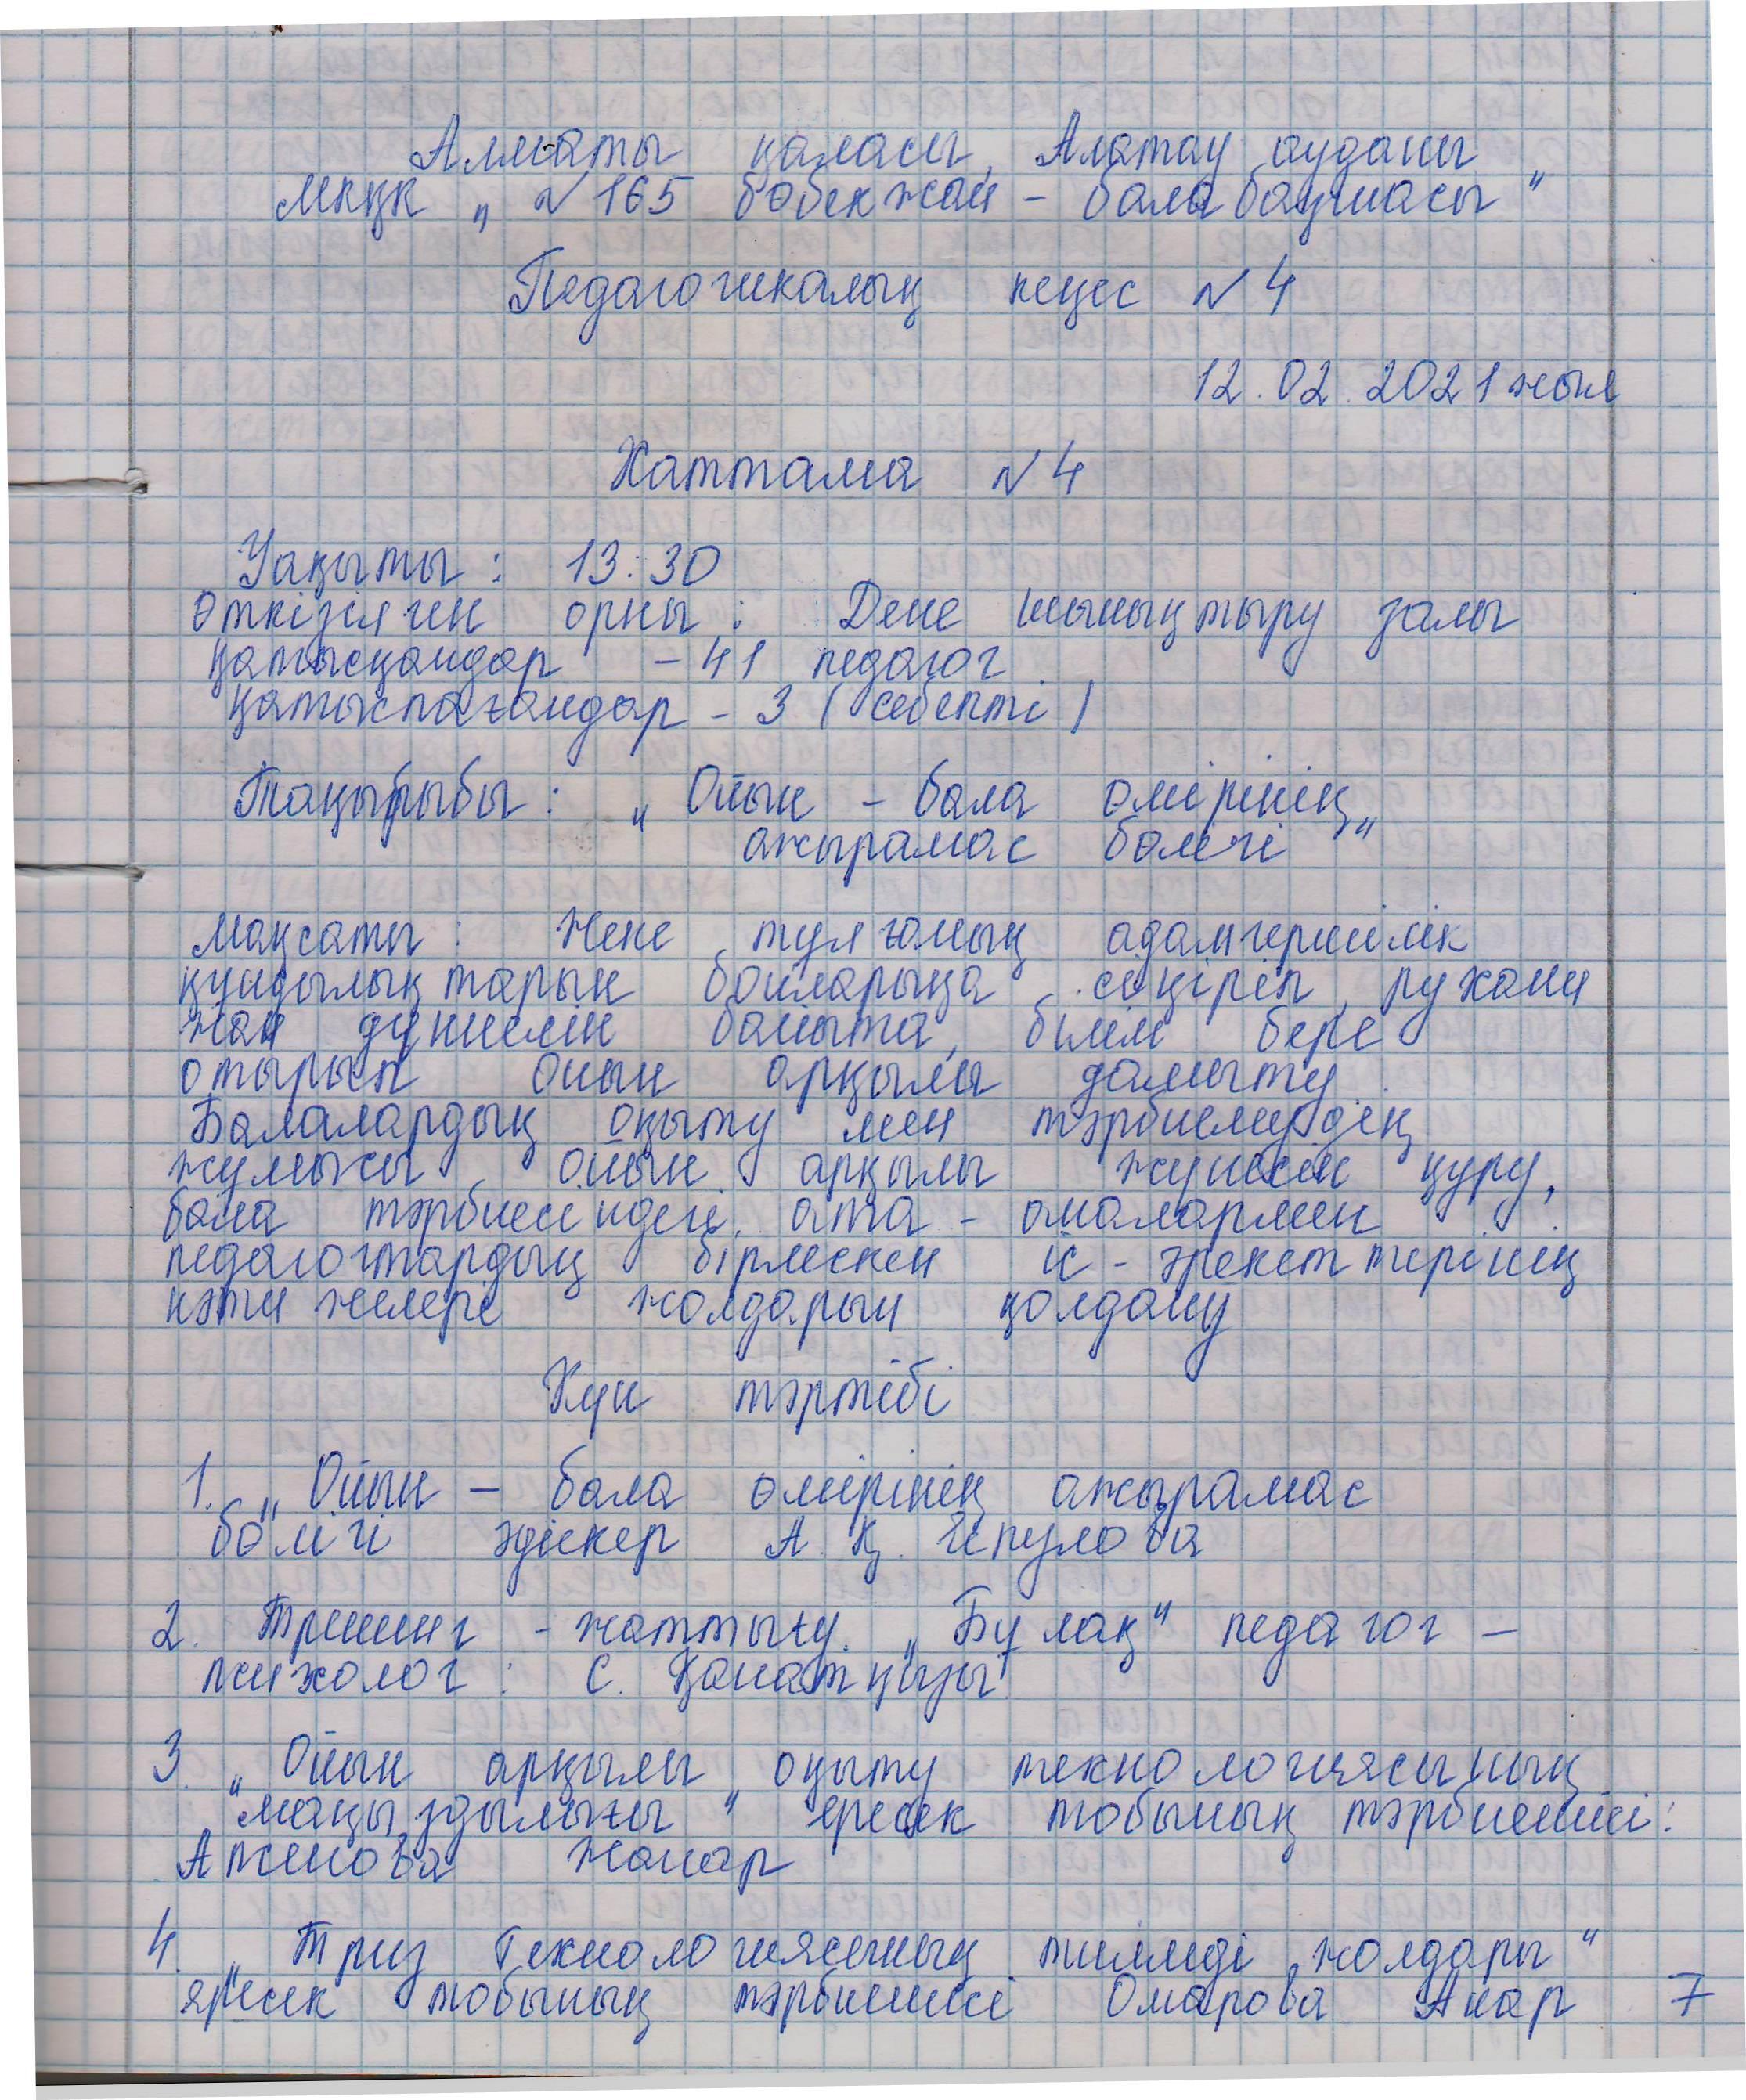 Алматы қаласы, Алатау ауданы
МКҚК „ №165 бөбекжай - балабақшасы "
Педагогикалық кеңес №4
12.02.2021 жыл
Хаттама №4
Уақыты : 13:30
Өткізілген орны : Дене шынықтыру залы
Қатысқандар - 41 педагог
Қатыспағандар - 3 ( себепті )
Тақырыбы : „ Ойын - бала өмірінің
ажырамас бөлігі "
Мақсаты : Жеке тұлғаның адамгершілік
құндылықтарын бойларыңа сіңіріп, рухани
жан дүниесін байыта, білім бере
отырып ойын арқылы дамыту.
Балалардың оқыту мен тәрбиелеудің
жұмысы ойын арқылы жүйесін құру,
бала тәрбиесіндегі ата - аналармен
педагогтардың бірлескен іс - әрекеттерінің
нәтижелері жолдарын қолдану
Күн тәртібі
1. „ Ойын - бала өмірінің ажырамас
бөлігі әдіскер А. Қ.
2. Тренинг - жаттығу. „ Бұлақ " педагог -
психолог : С. Қанатқызы
3. „ Ойын арқылы оқыту технологиясының
маңыздылығы " ересек тобының тәрбиешісі:
Аженова Жанар
4. „ Триз технологиясының тиімді жолдары "
ересек тобының тәрбиешісі Омарова Анар 7